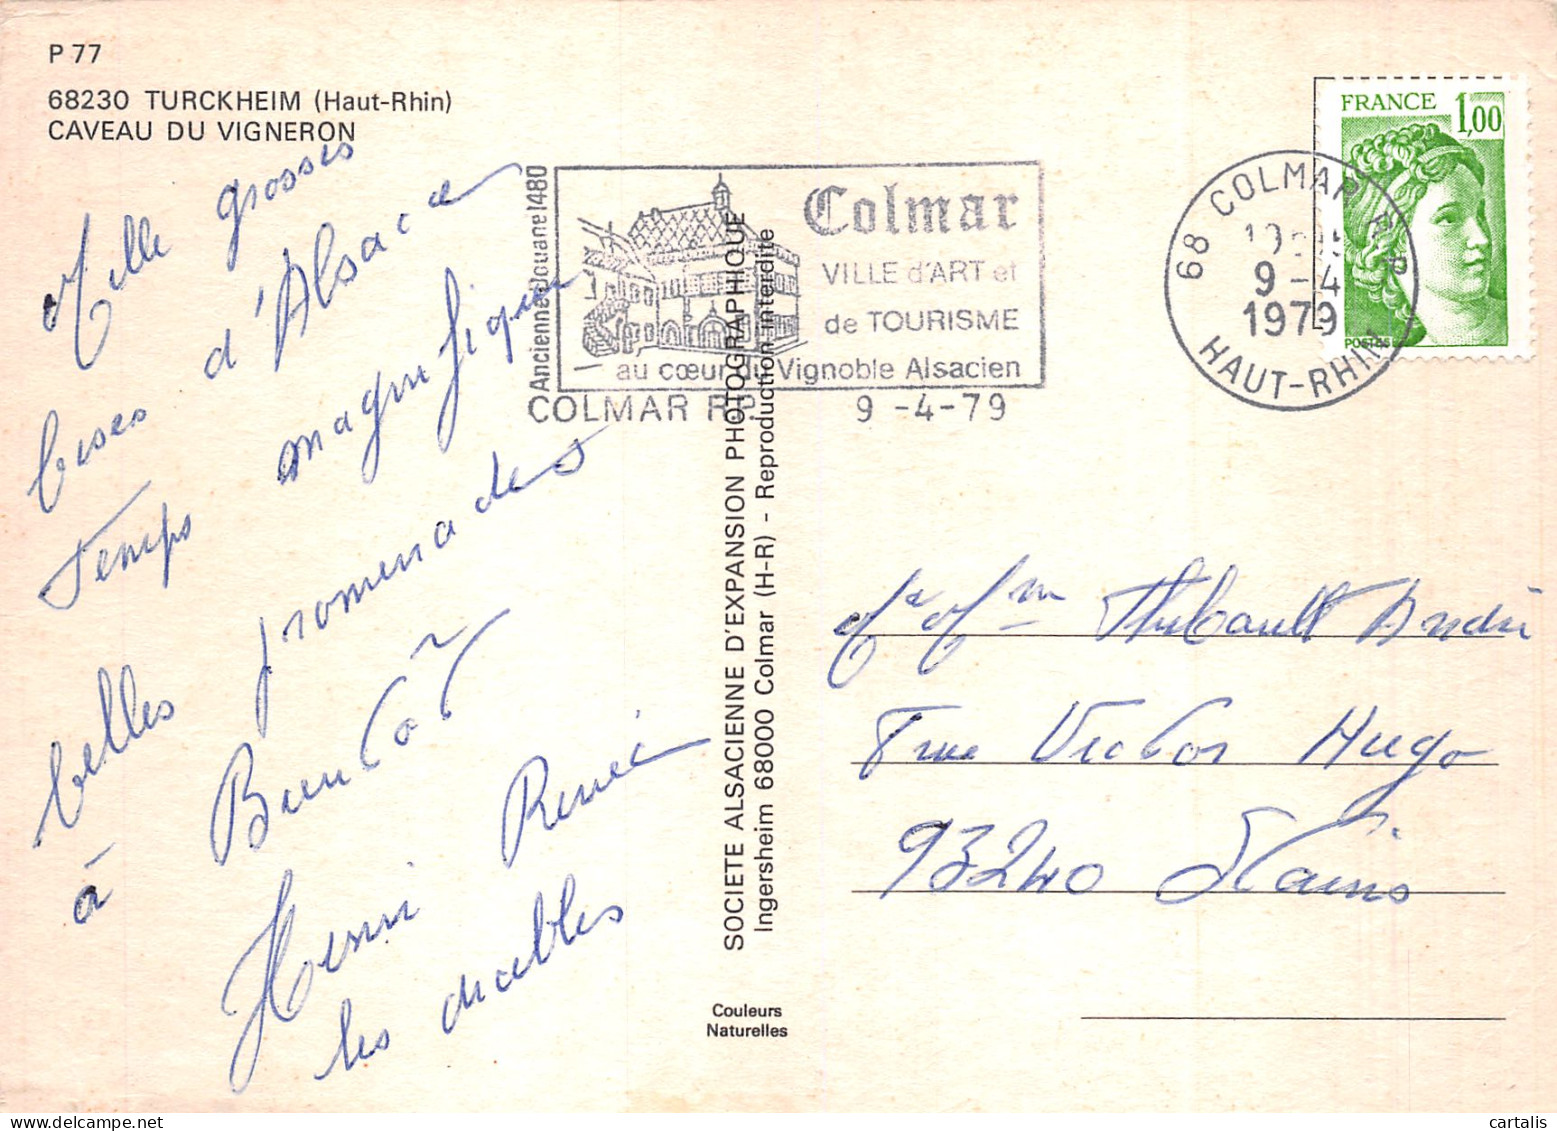 P 77
68230 TURCKHEIM (Haut-Rhin)
CAVEAU DU VIGNERON
Mille grosses
bises d'Alsace
Temps magnifique
belles promenades
à Bientôt
Henri Renée
les diables
Ancienne Douane 1480
Colmar
VILLE d'ART et
de TOURISME
au cœur du Vignoble Alsacien
COLMAR R.P. 9 -4-79
68 COLMAR R.P.
9 -4
1979
HAUT-RHIN
FRANCE 1,00
POSTES
SOCIETE ALSACIENNE D'EXPANSION PHOTOGRAPHIQUE
Ingersheim 68000 Colmar (H-R) - Reproduction interdite
Couleurs
Naturelles
Thibault André
rue Victor Hugo
93240 Stains
cartalis